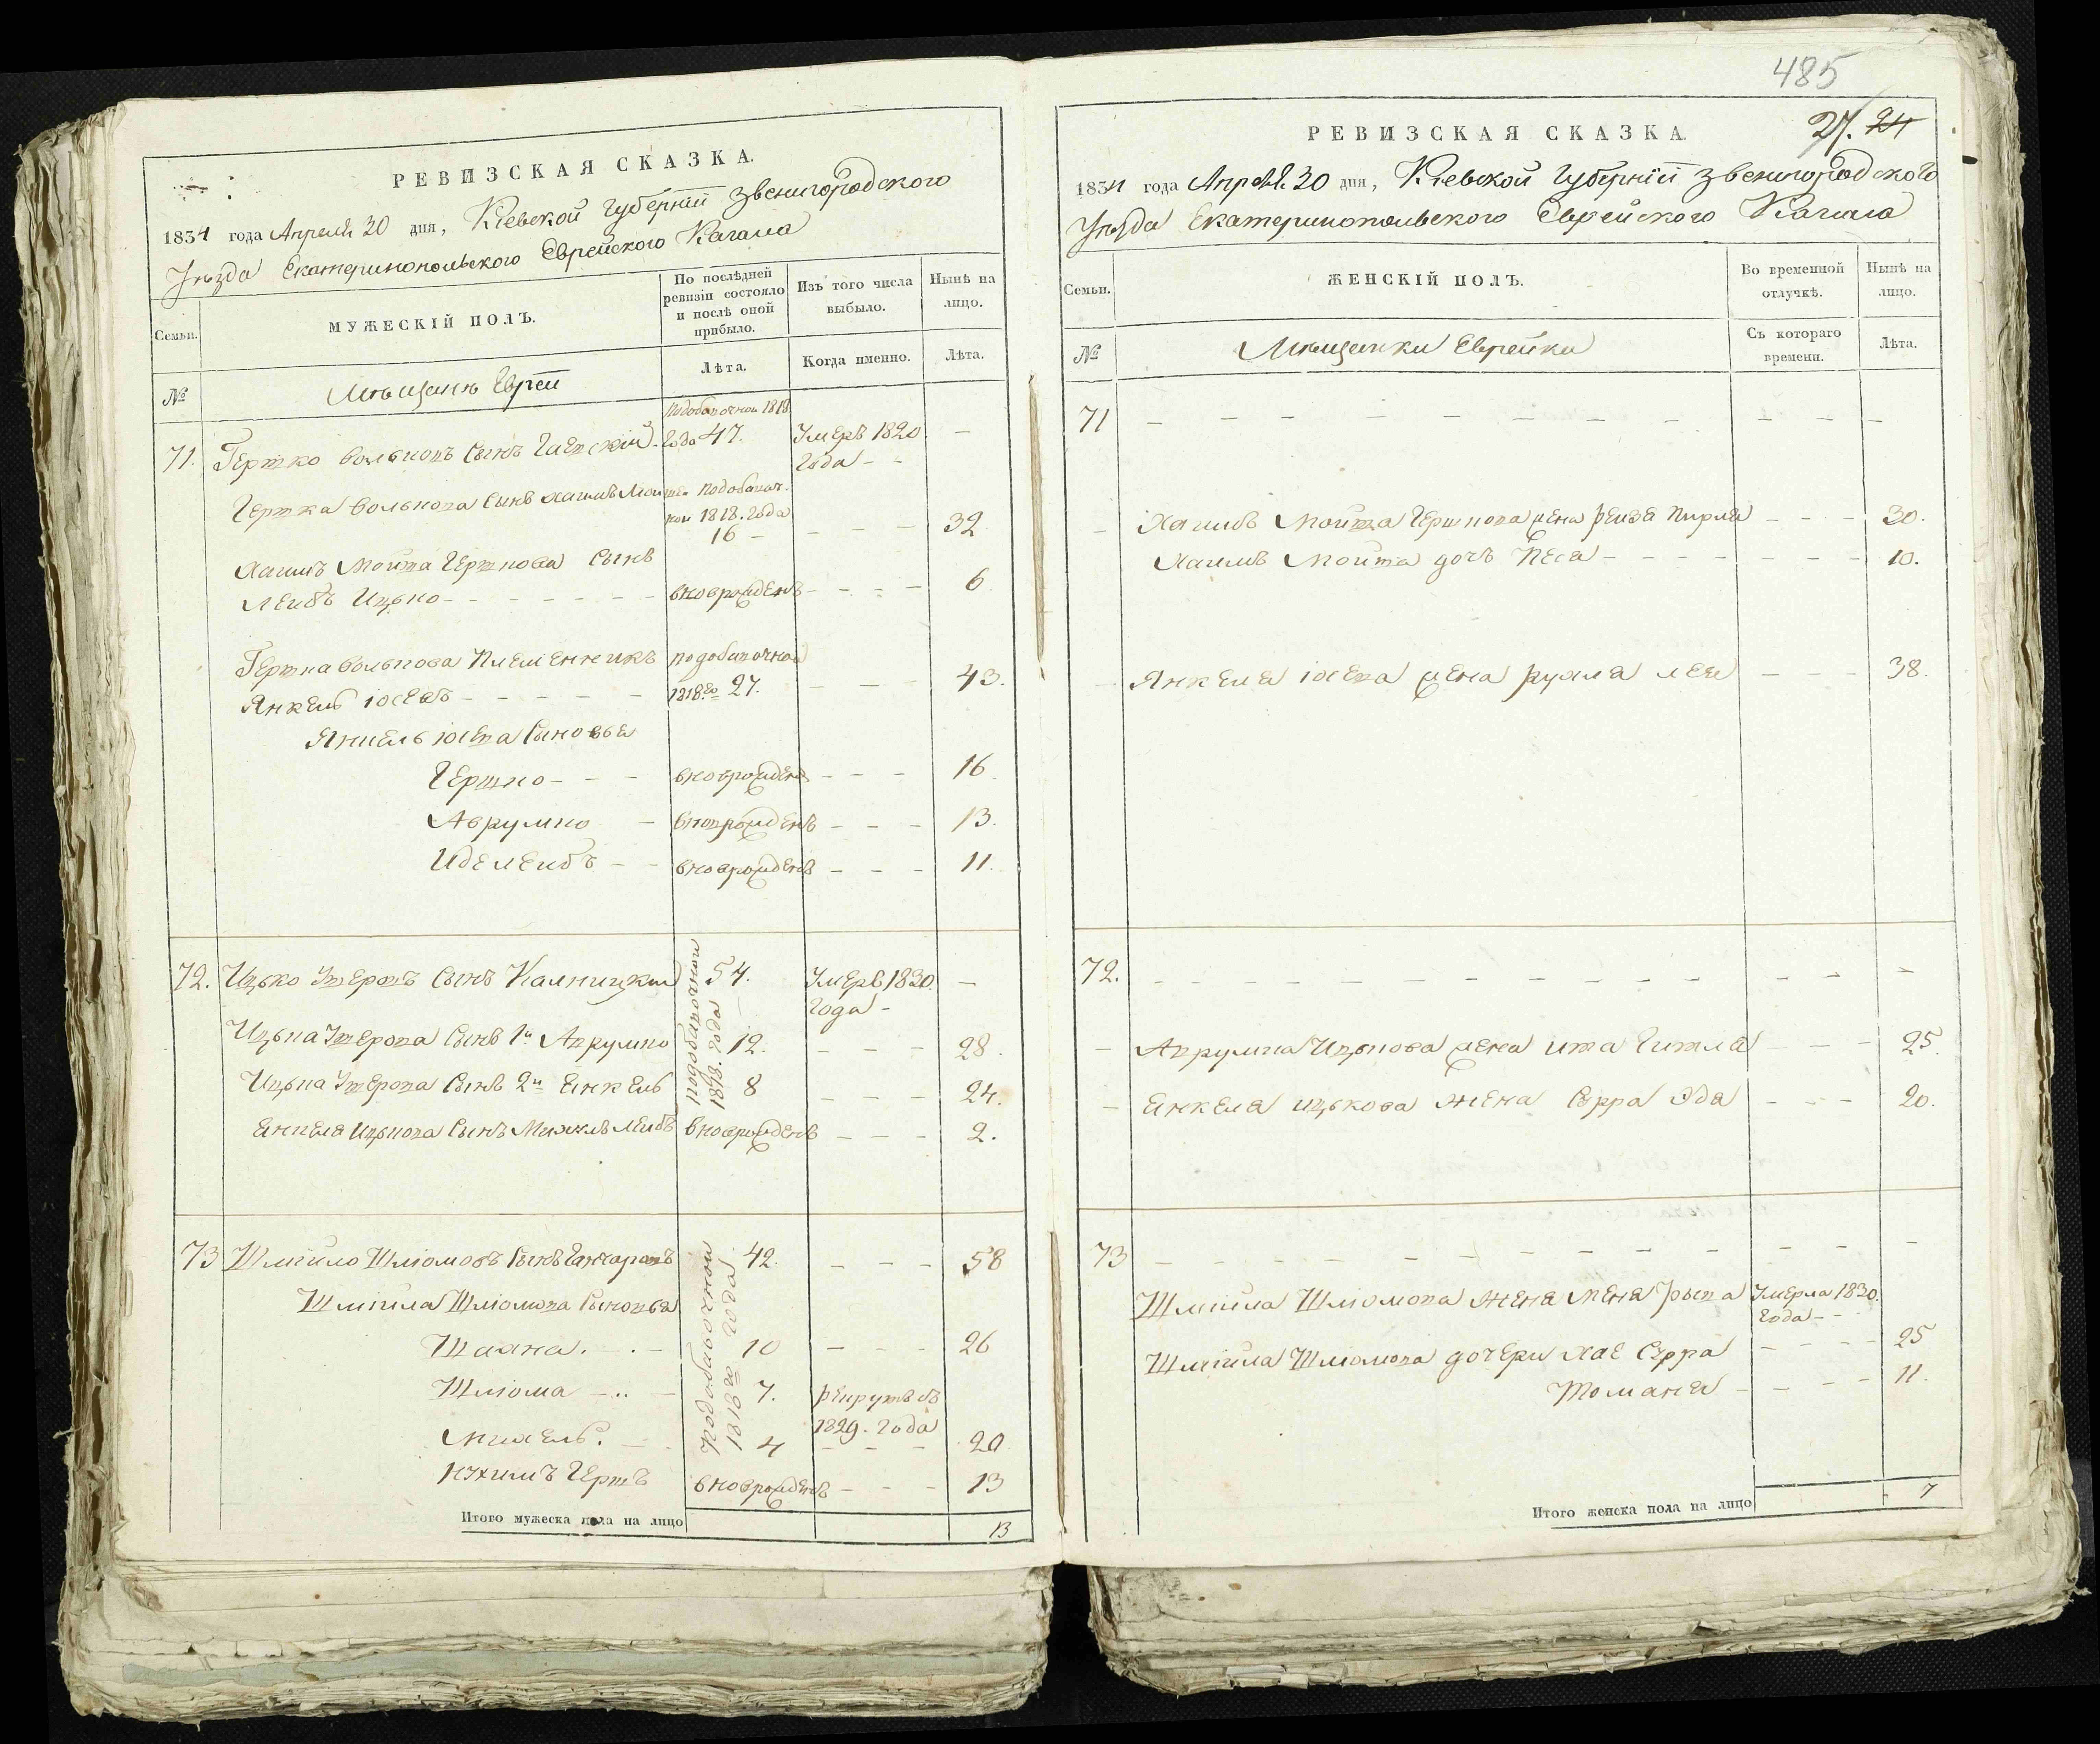 РЕВИЗСКАЯ СКАЗКА.
1834 года Апреля 30 дня, Кіевской Губерніи Звенигородского
Уѣзда Екатеринопольского Еврейского Кагала
Семьи.
МУЖЕСКІЙ ПОЛЪ.
По послѣдней
ревизіи состояло
и послѣ оной
прибыло.
Изъ того числа
выбыло.
Нынѣ на
лицо.
№
Мѣщанѣ Евреи
Лѣта.
Когда именно.
Лѣта.
подобавочной 1818
71. Гершко Вольковъ Сынъ года 47. Умеръ 1820. —
года - -
Гершка Волькова Сынъ Хаимъ Мошко Подобавоч.
ной 1818. года
16 - - - - 32.
Хаимъ Мошка Гершкова Сынъ
Лейбъ Ицько - - - - - - вновьрожденъ - - - - 6
Гершка Волькова Племенникъ подобавочной
Янкель Іосевъ - - - - - 1818.го 27. - - - 43.
Янкель Іосева Сыновья
Гершко - - - вновьрожденъ - - - 16
Аврумко - вновьрожденъ - - - 13.
Иделейбъ - - вновьрожденъ - - - 11.
подобавочной
1818. года
72. Ицько Сынъ Калницкий 54. Умеръ 1830. —
года -
Ицька Сынъ 1й Аврумко 12. - - - 28.
Ицька Сынъ 2й Енкель 8 - - - 24.
Енкеля Ицькова Сынъ Лейбъ вновьрожденъ - - - 2.
подобавочной
1818го года
73 Шміило Шліомовъ Сынъ Ганчаровъ 42. - - - 58
Шміила Шліомова Сыновья
Шаяна. - . - 10 - - - 26
Шліома - .. - 7. рекрутъ съ
1829. года
Михель. - 4 - - - 20
Нухимъ Гершъ вновьрожденъ - - - 13
Итого мужеска пола на лицо 13
485
27. 24
РЕВИЗСКАЯ СКАЗКА.
1834 года Апреля 30 дня, Кіевской Губерніи Звенигородского
Уѣзда Екатеринопольского Еврейского Кагала
Семьи.
ЖЕНСКІЙ ПОЛЪ.
Во временной
отлучкѣ.
Нынѣ на
лицо.
№
Мѣщанки Еврейки
Съ котораго
времени.
Лѣта.
71 - - - - - - - - - - -
- Хаимъ Мошка Гершкова жена Рейза Пирля - - - 30.
Хаимъ Мошка дочь Песя - - - - - - - 10.
- Янкеля Іосева жена Рухля Лея - - - 38.
72. - - - - - - - - - - -
- Аврумка Ицькова жена Ита Гитля - - - 25.
- Енкеля Ицькова жена Сурра Эда - - - 20.
73 - - - - - - - - - - -
Шміила Шліомова жена Умерла 1830.
года - -
Шміила Шліомова дочери Хае Сурра - - - - 25
- - - - 11.
Итого женска пола на лицо 7